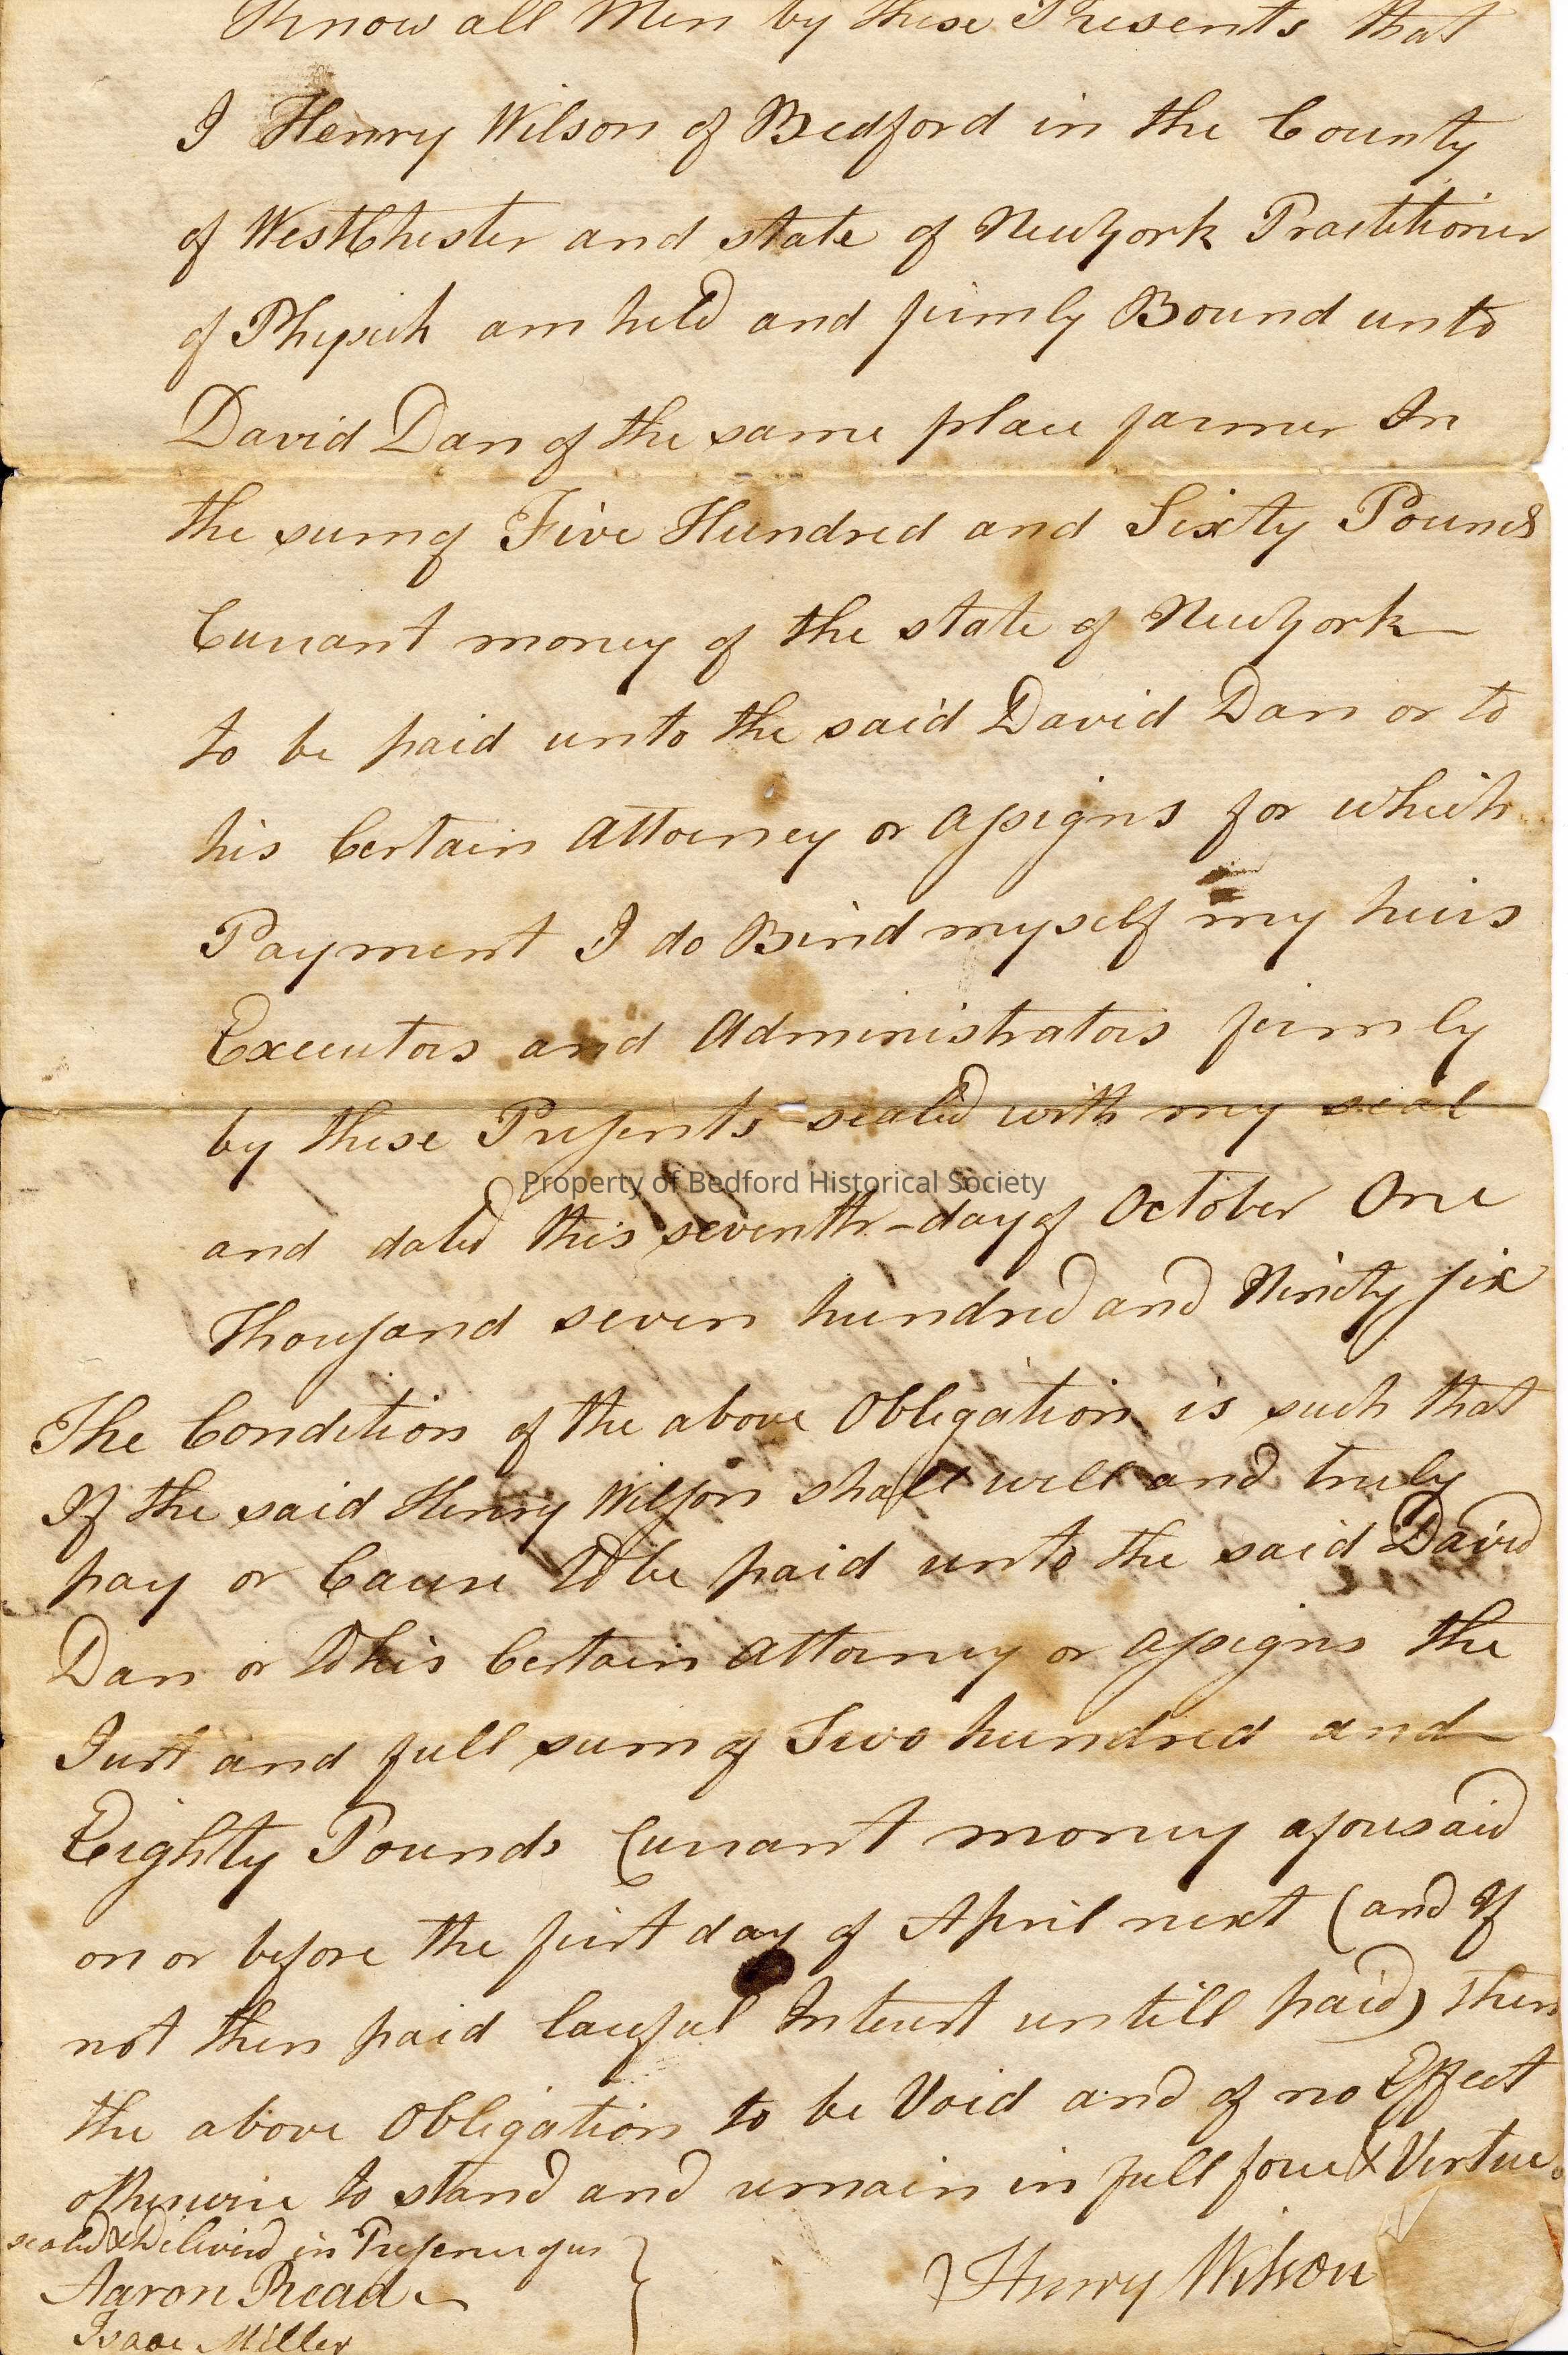 Know all Men by these Presents that
I Henry Wilson of Bedford in the County
of WestChester and state of NewYork Practitioner
of Physick am held and firmly Bound unto
David Dan of the same place farmer In
the sum of Five Hundred and Sixty Pounds
Currant money of the state of NewYork
to be paid unto the said David Dan or to
his Certain Attorney or assigns for which
Payment I do Bind myself my heirs
Executors and Administrators firmly
by these Presents sealed with my seal
Property of Bedford Historical Society
and dated this seventh day of October One
Thousand seven hundred and Ninety six
The Condition of the above Obligation is such that
If the said Henry Wilson shall well and truly
pay or Cause to be paid unto the said David
Dan or to his Certain Attorney or assigns the
Just and full sum of Two hundred and
Eighty Pounds Currant money aforesaid
on or before the first day of April next (and If
not then paid lawful Interest untill paid) then
the above Obligation to be Void and of no Effect
otherwise to stand and remain in full force & Vertue
sealed & Delivered in Presence of us
Henry Wilson
Aaron Read
Isaac Miller